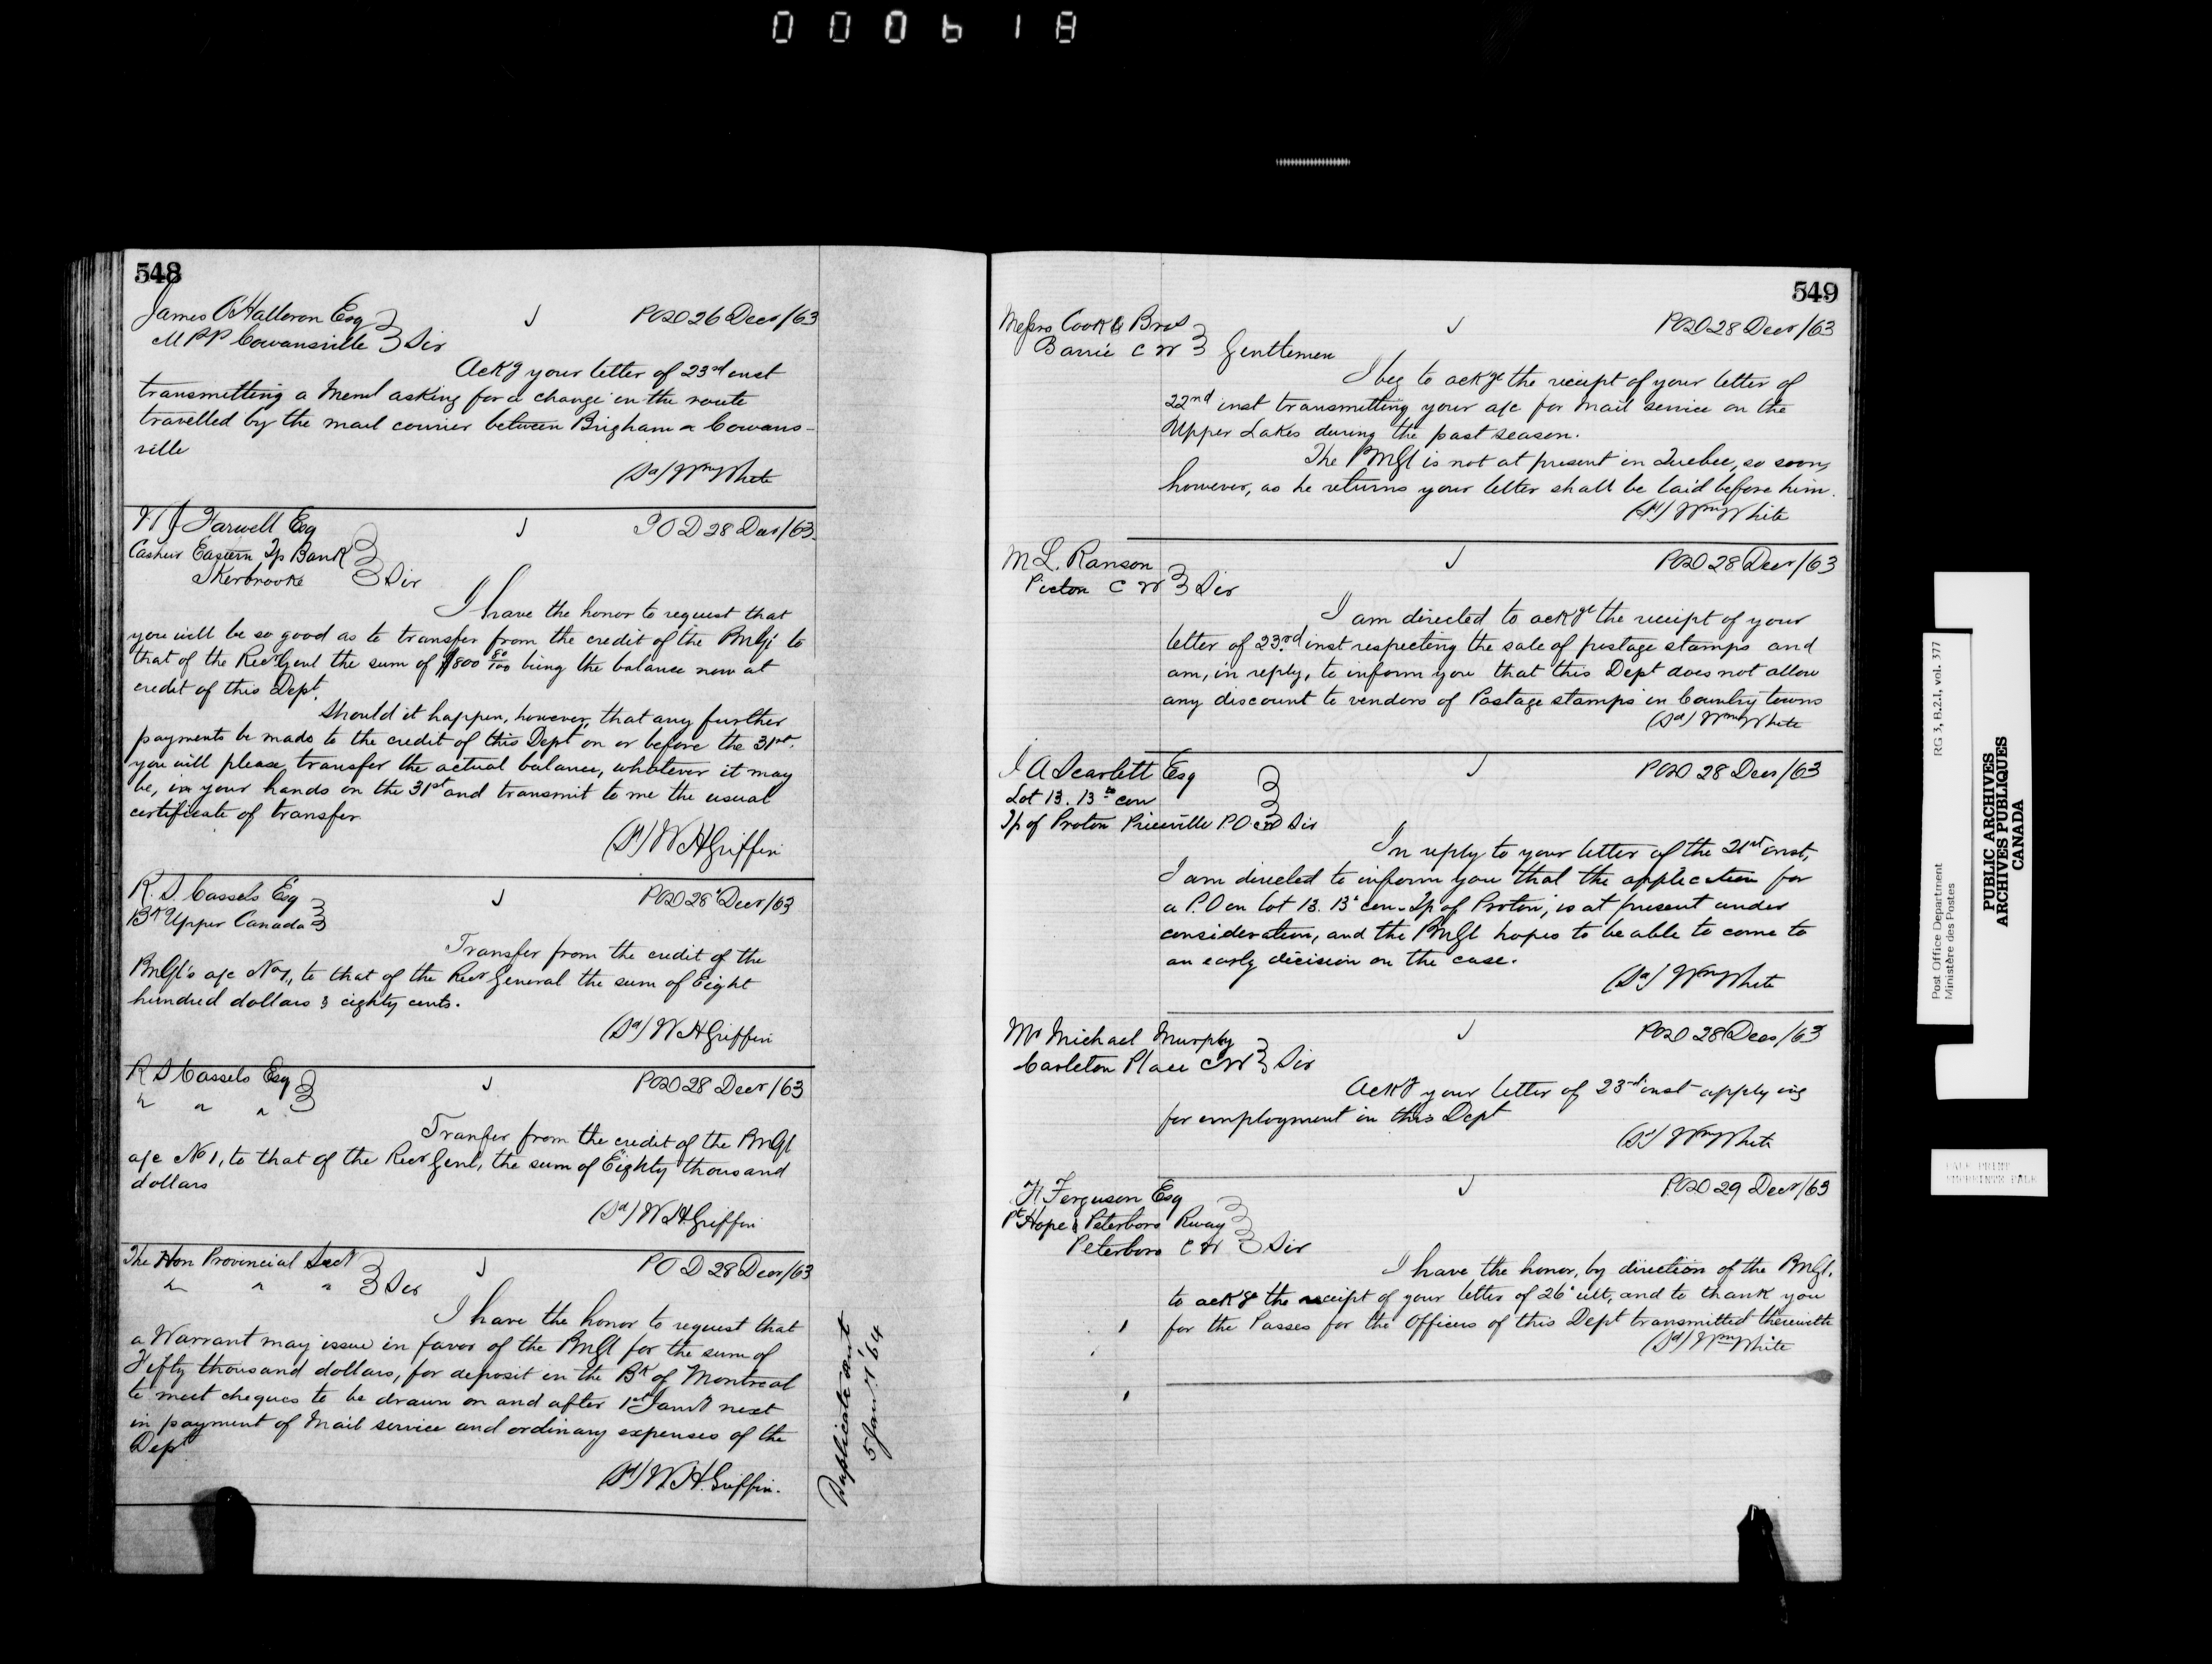 000618
548
James O'Halloran Esq
MPP Cowansville } Sir
POD 26 Decr/63
Ackg your letter of 23rd inst
transmitting a Meml asking for a change in the route
travelled by the mail courier between Brigham & Cowans-
ville
(Sd) Wm White
Farwell Esq
Cashier Eastern Tp Bank
Sherbrooke } Sir
POD 28 Decr/63
I have the honor to request that
you will be so good as to transfer from the credit of the PMGl to
that of the Recr Genl the sum of $800 80/100 being the balance now at
credit of this Dept.
Should it happen, however, that any further
payments be made to the credit of this Dept on or before the 31st.
you will please, transfer the actual balance, whatever it may
be, in your hands on the 31st and transmit to me the usual
certificate of transfer
(Sd) W H Griffin
R. S. Cassels Esq
Bk Upper Canada
POD 28 Decr/63
Transfer from the credit of the
PMGl's a/c No 1, to that of the Recr General the sum of Eight
hundred dollars & eighty cents.
(Sd) W H Griffin
R S Cassels Esq
" " "
POD 28 Decr/63
Tranfer from the credit of the PMGl
a/c No 1, to that of the Recr Genl, the sum of Eighty thousand
dollars
(Sd) W H Griffin
The Hon Provincial Secy
" " " } Sir
POD 28 Decr/63
I have the honor to request that
a Warrant may issue in favor of the PMGl for the sum of
Fifty thousand dollars, for deposit in the Bk of Montreal
to meet cheques to be drawn on and after 1st Jany next
in payment of Mail service and ordinary expenses of the
Dept
(Sd) W. H. Griffin.
Duplicate sent
5 Jany '64
549
Messrs Cook & Bros
Barrie C W } Gentlemen
POD 28 Decr/63
I beg to ackge the receipt of your letter of
22nd inst transmitting your a/c for Mail service on the
Upper Lakes during the past season.
The PMGl is not at present in Quebec, so soon,
however, as he returns your letter shall be laid before him.
(Sd) Wm White
M L. Ranson
Picton C W } Sir
POD 28 Decr/63
I am directed to ackge the receipt of your
letter of 23rd inst respecting the sale of postage stamps and
am, in reply, to inform you that this Dept does not allow
any discount to vendors of Postage stamps in Country towns
(Sd) Wm White
I A Scarlett Esq
Lot 13. 13th con
Tp of Proton Priceville P.O. CW Sir
POD 28 Decr/63
In reply to your letter of the 21st inst,
I am directed to inform you that the application for
a P.O on Lot 13. 13th con. Tp of Proton, is at present under
consideration, and the PMGl hopes to be able to come to
an early decision on the case.
(Sd) Wm White
Mr Michael Murphy
Carleton Place CW } Sir
POD 28 Decr/63
Ackg your letter of 23rd inst applying
for employment in this Dept
(Sd) Wm White
F. Ferguson Esq
Pt Hope & Peterboro Rway
Peterboro C W } Sir
POD 29 Decr/63
I have the honor, by direction of the PMGl.
to ackge the receipt of your letter of 26th ult, and to thank you
for the Passes for the Officers of this Dept transmitted therewith
(Sd) Wm White
Post Office Department
Ministère des Postes
RG 3, B.2.1, vol. 377
PUBLIC ARCHIVES
ARCHIVES PUBLIQUES
CANADA
PALE PRINT
IMPRIMÉE PALE